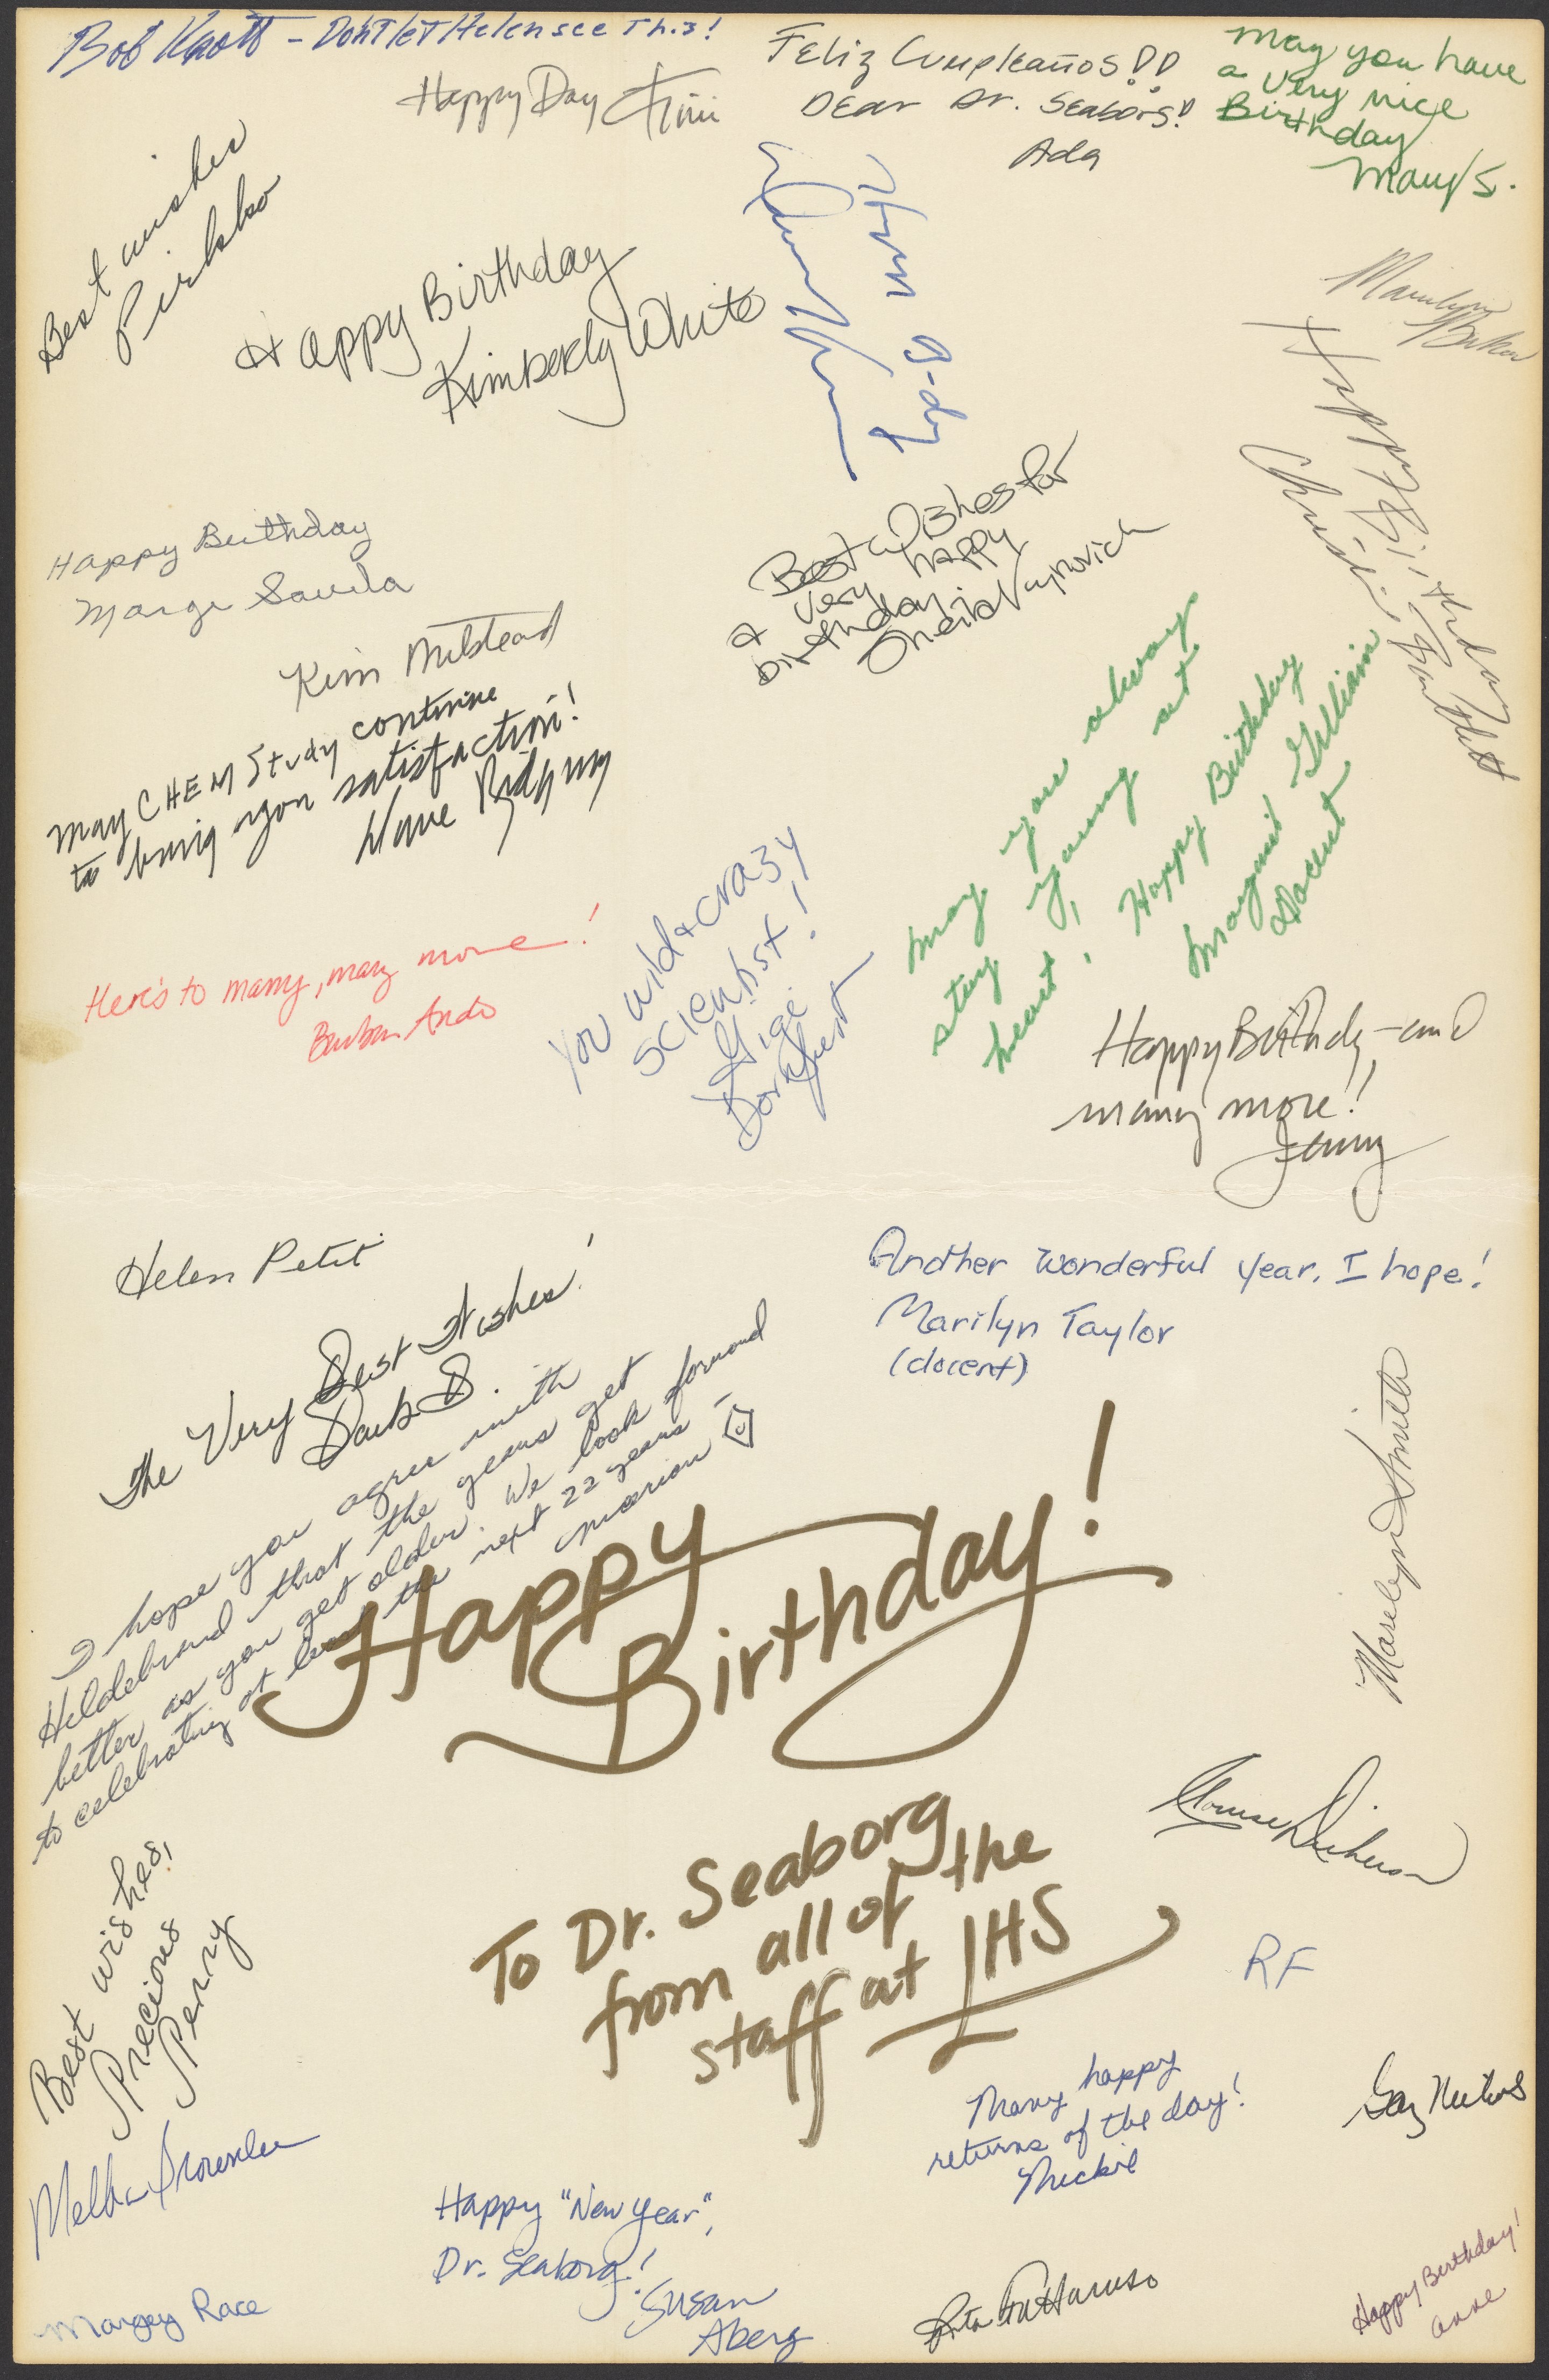 Bob Knott - Don't let Helen see this!
Happy Day
Feliz Cumpleaños!!
Dear Dr. Seaborg!
Ada
may you have
a very nice
Birthday
Mary S.
Best wishes
Pirkko
Happy Birthday
Kimberly White
Happy B-day
Marilyn
Baker
Happy Birthday
Christine Bartlett
Happy Birthday
Marge
Kim Milstead
Best wishes for
a very happy
birthday.
Sheila
May CHEM Study continue
to bring you satisfaction!
Dave Ridgway
may you always
stay young at
heart! Happy Birthday
Margaret Gilliam
Docent
Here's to many, many more!
Barbara Ando
You wild + crazy
scientist!
Gigi
Dornfest
Happy Birthday - and
many more!!
Jenny
Helen Petit
Another wonderful year, I hope!
Marilyn Taylor
(docent)
The Very Best Wishes!
Barb B.
I hope you agree with
Hildebrand that the years get
better as you get older. We look forward
to celebrating at least the next 22 years -
Marion
Marilyn Smith
Happy
Birthday!
To Dr. Seaborg
from all of the
staff at LHS
Louise Dickerson
RF
Best wishes,
Precious
Perry
Many happy
returns of the day!
Mickie
Melba
Happy "New Year",
Dr. Seaborg!
Susan
Aberg
Margey Race
Rita
Happy Birthday!
Anne